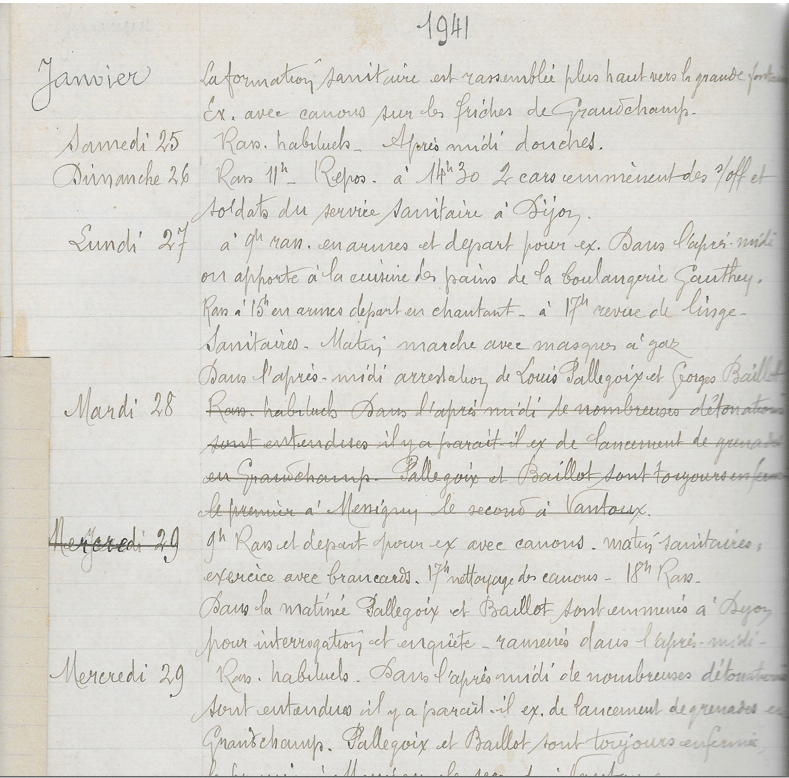 1941
Janvier La formation sanitaire est rassemblée plus haut vers la grande
Ex. avec canons sur les friches de Grandchamp.
Samedi 25 Rass. habituels - Après midi douches.
Dimanche 26 Rass 11h - Repos. à 14h30 2 cars emmènent des s/off et
soldats du service sanitaire à Dijon.
Lundi 27 à 9h rass. en armes et depart pour ex. Dans l'après-midi
on apporte à la cuisine des pains de la boulangerie Gauthey.
Rass à 15h en armes depart en chantant - à 17h revue de linge -
Sanitaires - Matin marche avec masques à gaz
Dans l'après-midi arrestation de Louis Pallegoix et Georges Baillot
Mardi 28 Rass. habituels Dans l'après midi de nombreuses détonations
sont entendues il y a parait-il ex de lancement de grenades
en Grandchamp. Pallegoix et Baillot sont toujours
le premier à Messigny le second à Vantoux.
Mercredi 29 9h Rass et depart pour ex avec canons. matin sanitaires,
exercice avec brancards. 17h nettoyage des canons - 18h Rass.
Dans la matinée Pallegoix et Baillot sont emmenés à Dijon
pour interrogation et enquête - ramenés dans l'après-midi -
Mercredi 29 Rass. habituels. Dans l'après midi de nombreuses détonations
sont entendues il y a parait-il ex. de lancement de grenades en
Grandchamp. Pallegoix et Baillot sont toujours enfermés,